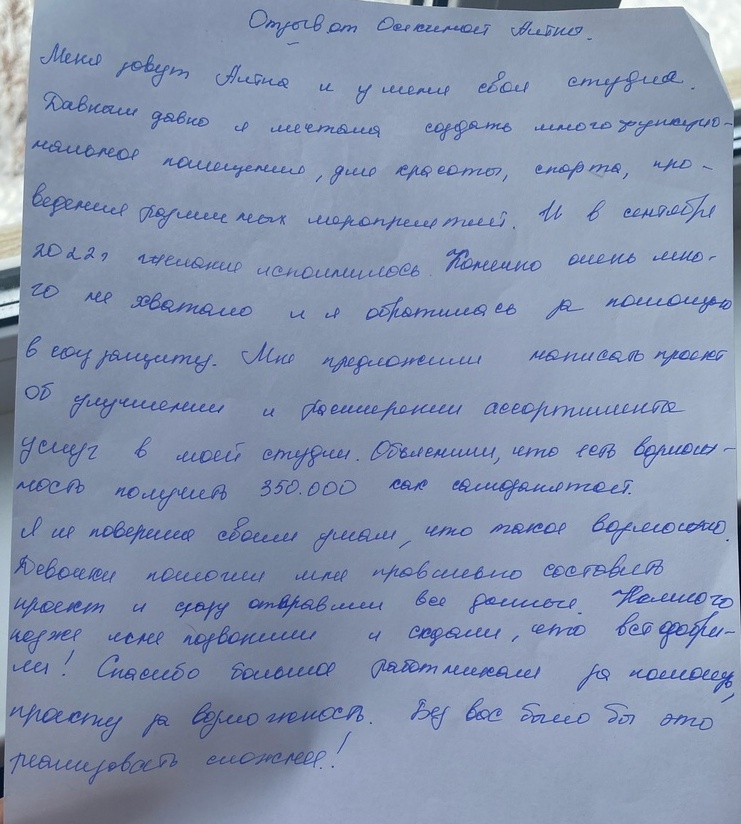 Отзыв от Осикиной Алины.
Меня зовут Алина и у меня своя студия.
Давным давно я мечтала создать многофункцио-
нальное помещение, для красоты, спорта, про-
ведения различных мероприятий. И в сентябре
2022г желание исполнилось. Конечно очень мно-
го не хватало и я обратилась за помощью
в соц защиту. Мне предложили написать проект
об улучшении и расширении ассортимента
услуг в моей студии. Объяснили, что есть возмож-
ность получить 350.000 как самозанятой.
Я не поверила своим ушам, что такое возможно.
Девочки помогли мне правильно составить
проект и сразу отправили все данные. Немного
позже мне позвонили и сказали, что всё одобри-
ли! Спасибо большое работникам за помощь,
проекту за возможность. Без вас было бы это
реализовать сложнее!